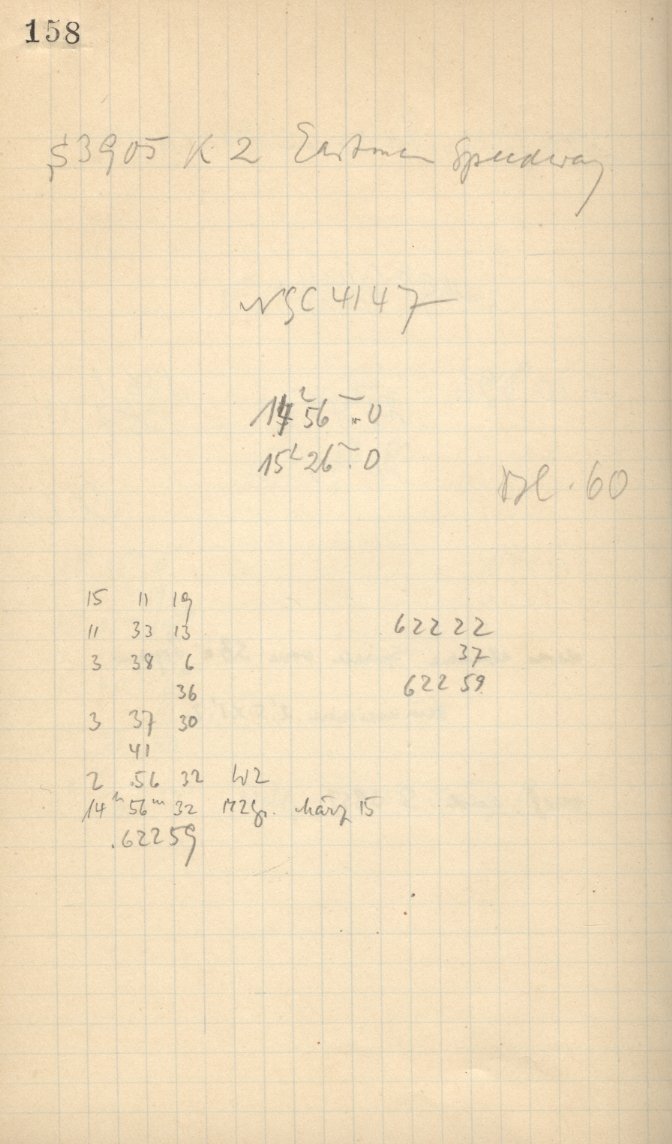 158
S3905 K2 Eastman Speedway
NGC 4147
14h56m.0
15h26m.0
Bl. 60
15 11 19
11 33 13
3 38 6
36
3 37 30
41
2 56 32 W2
14h 56m 32 MZgr. März 15
.62259
62222
37
62259